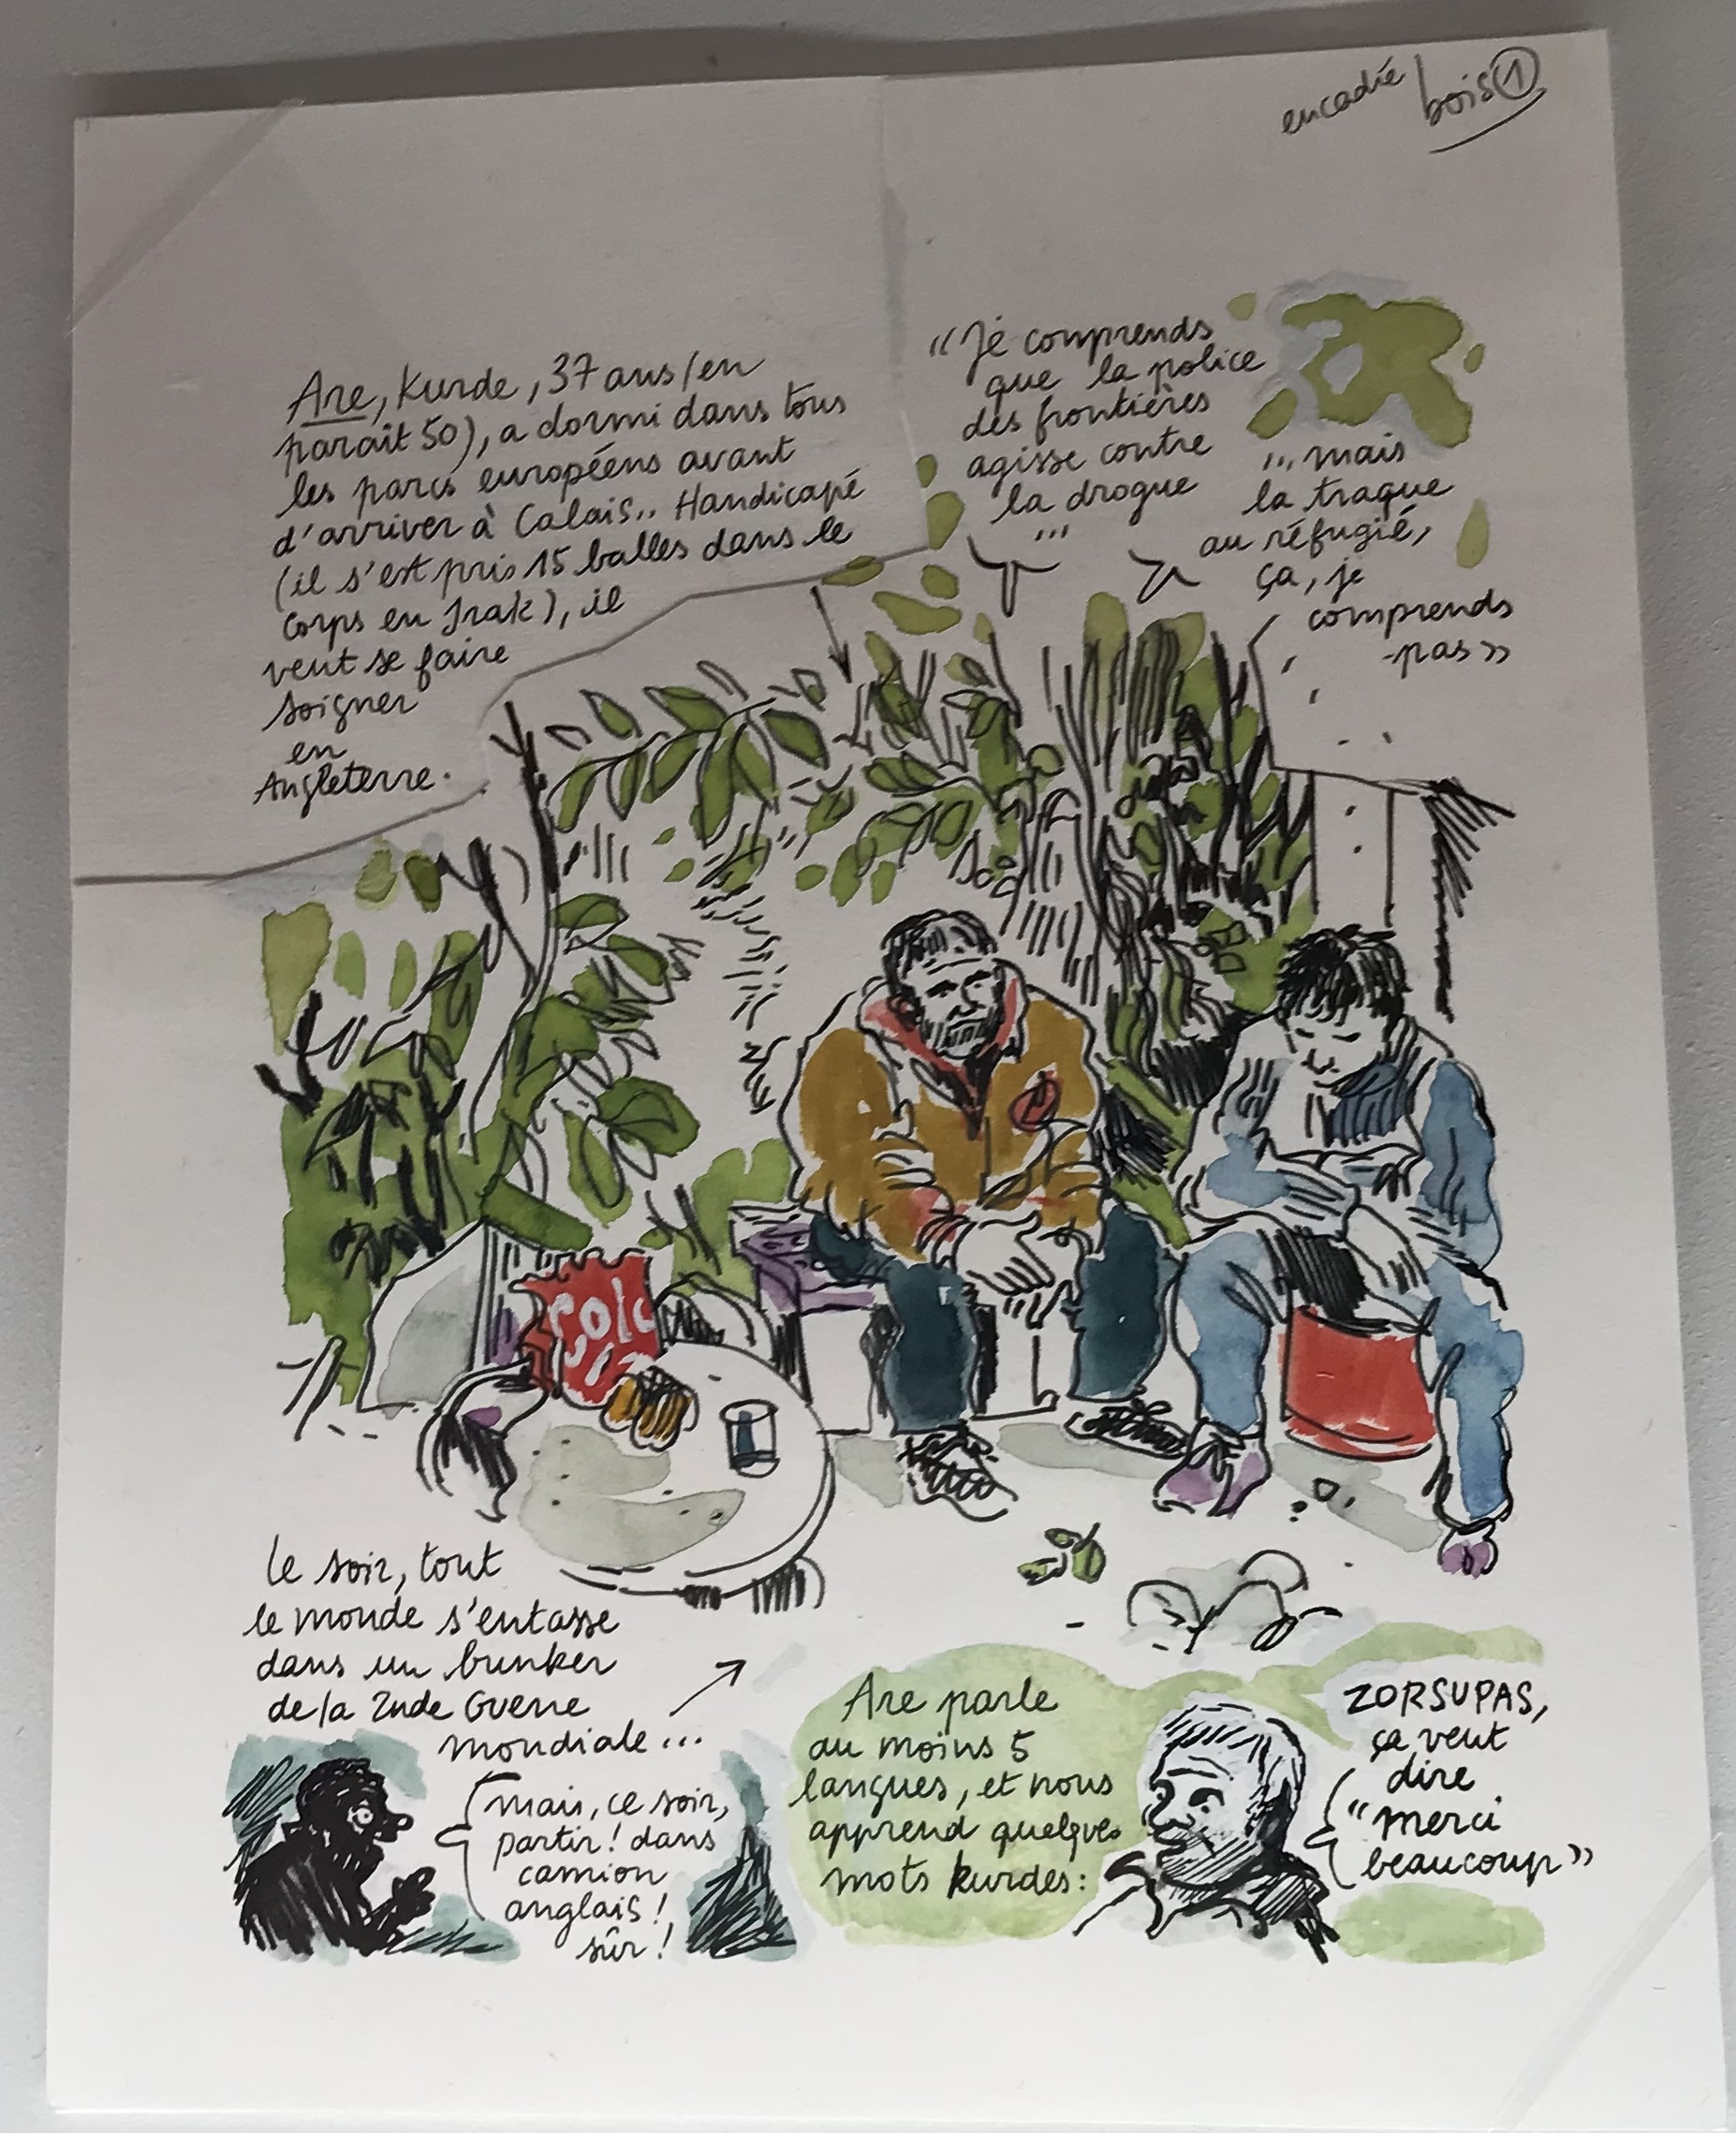 encadré bois ①
Are, Kurde, 37 ans (en
paraît 50), a dormi dans tous
les parcs européens avant
d'arriver à Calais.. Handicapé
(il s'est pris 15 balles dans le
corps en Irak), il
veut se faire
soigner
en
Angleterre.
"Je comprends
que la police
des frontières
agisse contre
la drogue
...
... mais
la traque
au réfugié,
ça, je
comprends
pas"
le soir, tout
le monde s'entasse
dans un bunker
de la 2nde Guerre
mondiale...
mais, ce soir,
partir! dans
camion
anglais!
sûr!
Are parle
au moins 5
langues, et nous
apprend quelques
mots kurdes:
ZORSUPAS,
ça veut
dire
"merci
beaucoup"